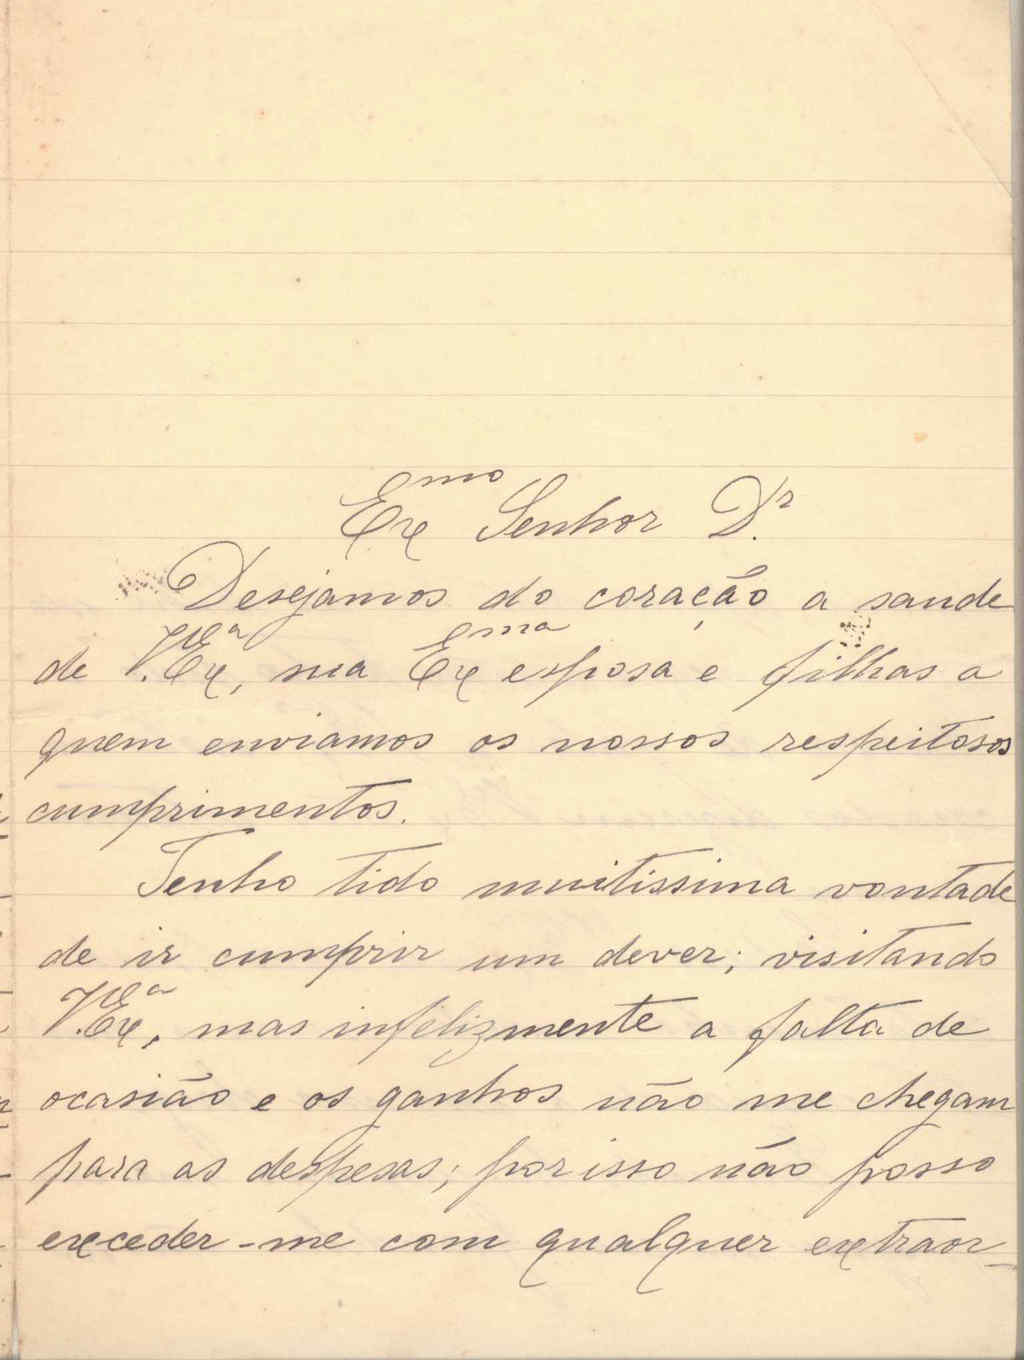 Exmo Senhor Dr.
Desejamos do coração a saude
de V. Exa, sua Exma esposa e filhas a
quem enviamos os nossos respeitosos
cumprimentos.
Tenho tido muitissima vontade
de ir cumprir um dever; visitando
V. Exa, mas infelizmente a falta de
ocasião e os ganhos não me chegam
para as despesas; por isso não posso
exceder-me com qualquer extraor-